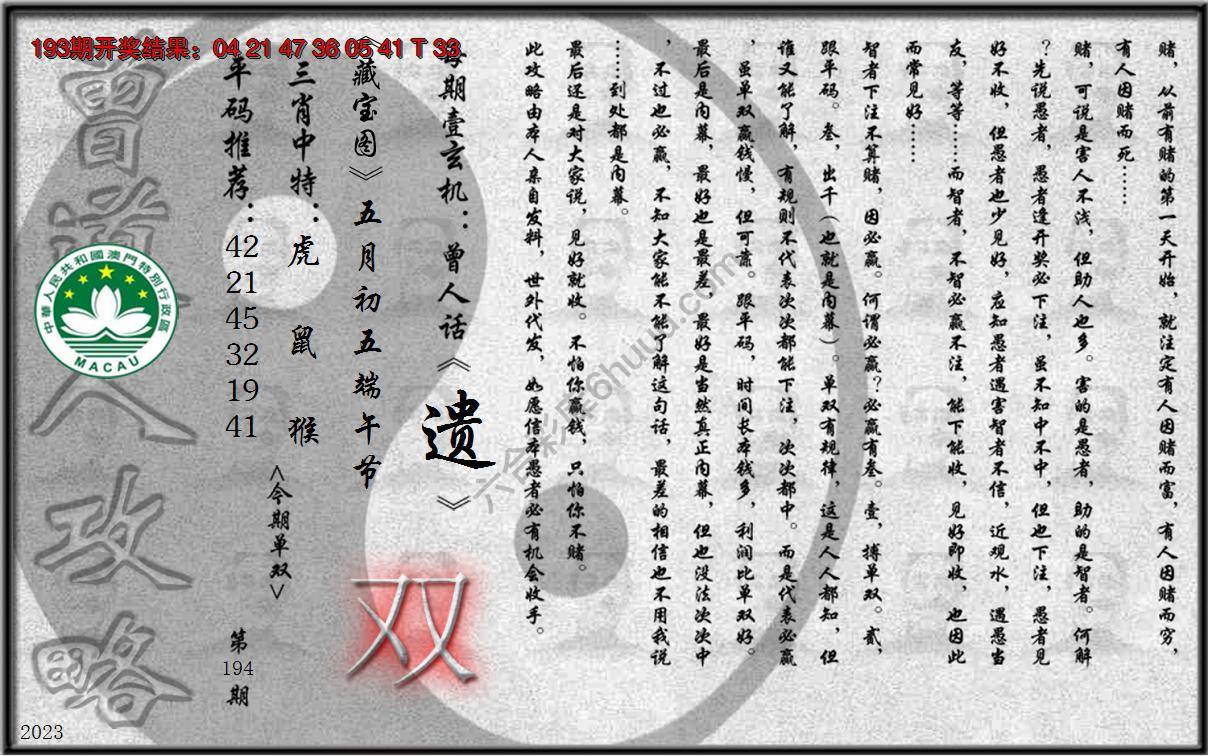 193期开奖结果：04 21 47 36 05 41 T 33
赌，从前有赌的第一天开始，就注定有人因赌而富，有人因赌而穷，
有人因赌而死……
赌，可说是害人不浅，但助人也多。害的是愚者，助的是智者。何解
？先说愚者，愚者逢开奖必下注，虽不知中不中，但也下注，愚者见
好不收，但愚者也少见好，应知愚者遇害智者不信，近观水，遇愚当
友，等等……而智者，不智必赢不注，能下能收，见好即收，也因此
而常见好……
智者下注不算赌，因必赢。何谓必赢？必赢有叁。壹，搏单双。贰，
跟平码。叁，出千（也就是内幕）。单双有规律，这是人人都知，但
谁又能了解，有规则不代表次次都能下注，次次都中。而是代表必赢
，虽单双赢钱慢，但可靠。跟平码，时间长本钱多，利润比单双好。
最后是内幕，最好也是最差，最好是当然真正内幕，但也没法次次中
，不过也必赢，不知大家能不能了解这句话，最差的相信也不用我说
……到处都是内幕。
最后还是对大家说，见好就收。不怕你赢钱，只怕你不赌。
此攻略由本人亲自发料，世外代发，如愿信本愚者必有机会收手。
每期壹玄机：曾人话《遗》
《藏宝图》五月初五端午节
双
三肖中特：虎 鼠 猴
<今期单双>
平码推荐：42 21 45 32 19 41
第194期
曾道人攻略
中華人民共和國澳門特別行政區
MACAU
六合彩库6huuu.com
2023